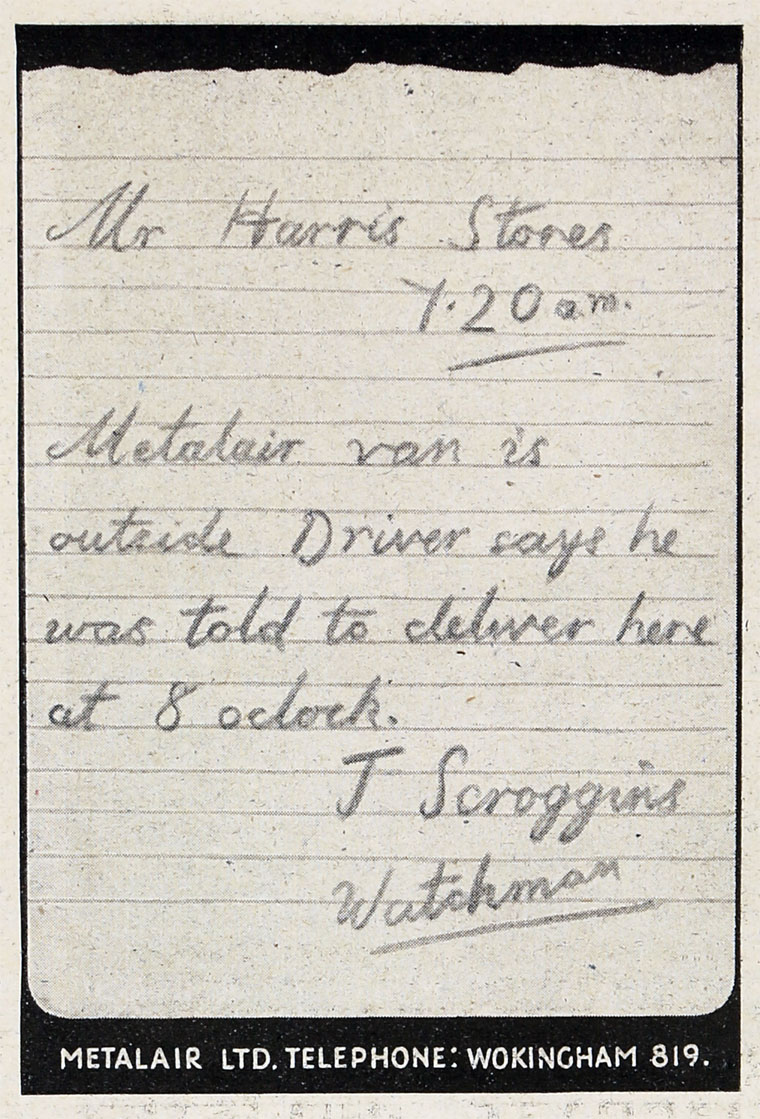 Mr Harris Stores
7.20 am.
Metalair van is
outside Driver says he
was told to deliver here
at 8 oclock.
J Scroggins
Watchman
METALAIR LTD. TELEPHONE: WOKINGHAM 819.